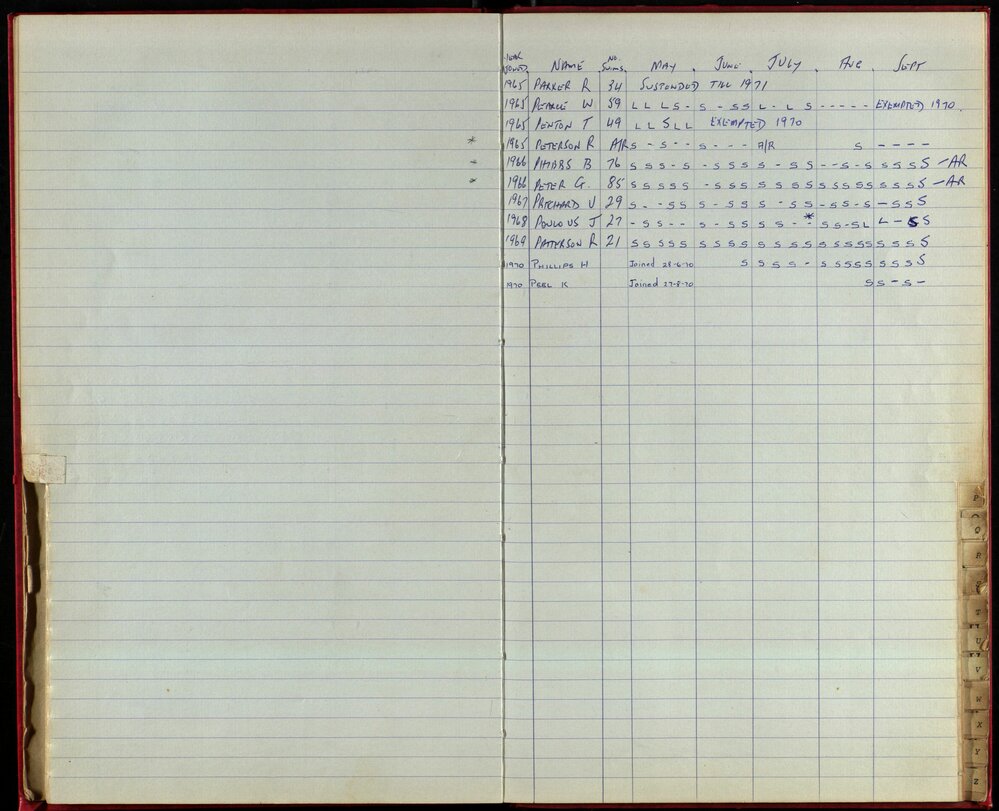 YEAR JOINED NAME NO. SWIMS MAY JUNE JULY AUG SEPT
1965 PARKER R 34 SUSPENDED TILL 1971
1965 PEARCE W 59 L L L S - S - S S L - L S - - - - - EXEMPTED 1970
1965 PENTON T 49 L L S L L EXEMPTED 1970
* 1965 PETERSON R A/R S - S - - S - - - A/R S - - - -
- 1966 PHIBBS B 76 S S S - S - S S S S S - S S - - S - S S S S S - AR
* 1966 PETER G. 85 S S S S S - S S S S S S S S S S S S S S S S - AR
1967 PRITCHARD V 29 S - - S S S - S S S S - S S - S S - S - S S S
1968 POULOUS J 27 - S S - - S - S S S S - - * S S - S L L - S S
1969 PATTERSON R 21 S S S S S S S S S S S S S S S S S S S S S S
1970 PHILLIPS H Joined 28-6-70 S S S S - S S S S S S S S S
1970 PEEL K Joined 27-8-70 S S - S -
P
Q
R
T
U
V
W
X
Y
Z